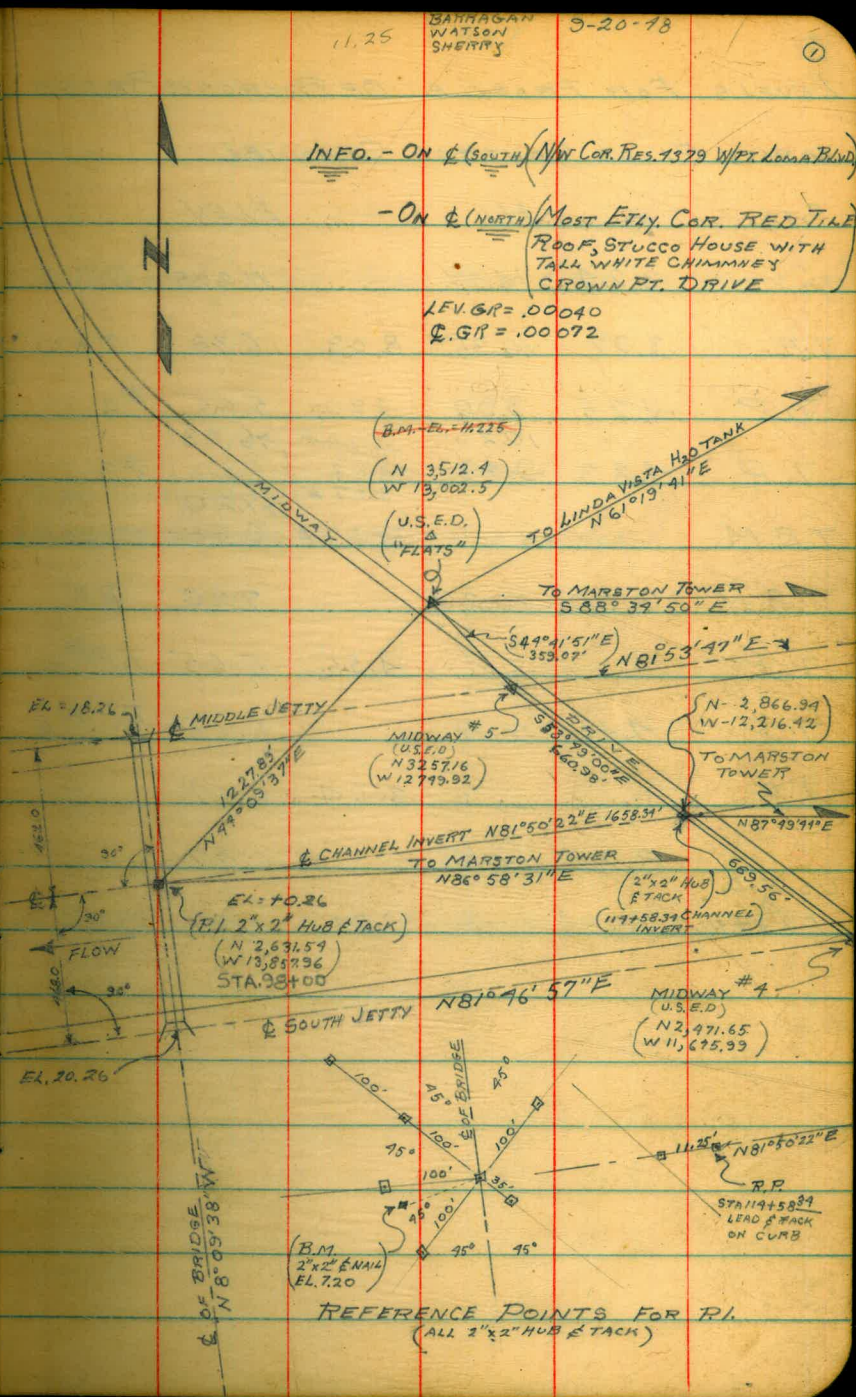 11.25
BARRAGAN
WATSON
SHERRY
9-20-48
1
INFO. - ON ℄ (SOUTH) (N/W COR. RES. 4379 W/PT. LOMA BLVD)
- ON ℄ (NORTH) (MOST ETLY. COR. RED TILE
ROOF, STUCCO HOUSE WITH
TALL WHITE CHIMMNEY
CROWN PT. DRIVE)
N
LEV. GR = .00040
℄. GR = .00072
(B.M. - EL. = 11.225)
(N 3,512.4
W 13,002.5)
(U.S.E.D.
△
"FLATS")
MIDWAY
TO LINDA VISTA H2O TANK
N 61° 19' 41" E
TO MARSTON TOWER
S 88° 34' 50" E
(S 44° 41' 51" E)
359.07'
℄ N 81° 53' 47" E
EL = 18.26
℄ MIDDLE JETTY
MIDWAY #5
(U.S.E.D)
(N 3257.16
W 12749.92)
DRIVE
S 53° 49' 00" E
660.98'
(N - 2,866.94
W - 12,216.42)
TO MARSTON
TOWER
N 87° 49' 44" E
1227.83'
N 44° 09' 37" E
462.0
90°
℄ CHANNEL INVERT N 81° 50' 22" E 1658.34'
TO MARSTON TOWER
N 86° 58' 31" E
669.56'
(2"x2" HUB
& TACK)
(114+58.34 CHANNEL
INVERT)
EL = +0.26
(P.I. 2"x2" HUB & TACK)
(N 2,631.54
W 13,857.96)
STA. 98+00
90°
FLOW
468.0
90°
℄ SOUTH JETTY N 81° 46' 57" E
MIDWAY #4
(U.S.E.D)
(N 2,471.65
W 11,675.99)
EL. 20.26
℄ OF BRIDGE
N 8° 09' 38" W
℄ OF BRIDGE
100'
45°
45°
100'
100'
45°
100'
35'
45°
100'
45°
45°
(B.M.
2"x2" & NAIL
EL. 7.20)
11.25'
N 81° 50' 22" E
R.P.
STA 114+58.34
LEAD & TACK
ON CURB
REFERENCE POINTS FOR P.I.
(ALL 2"x2" HUB & TACK)